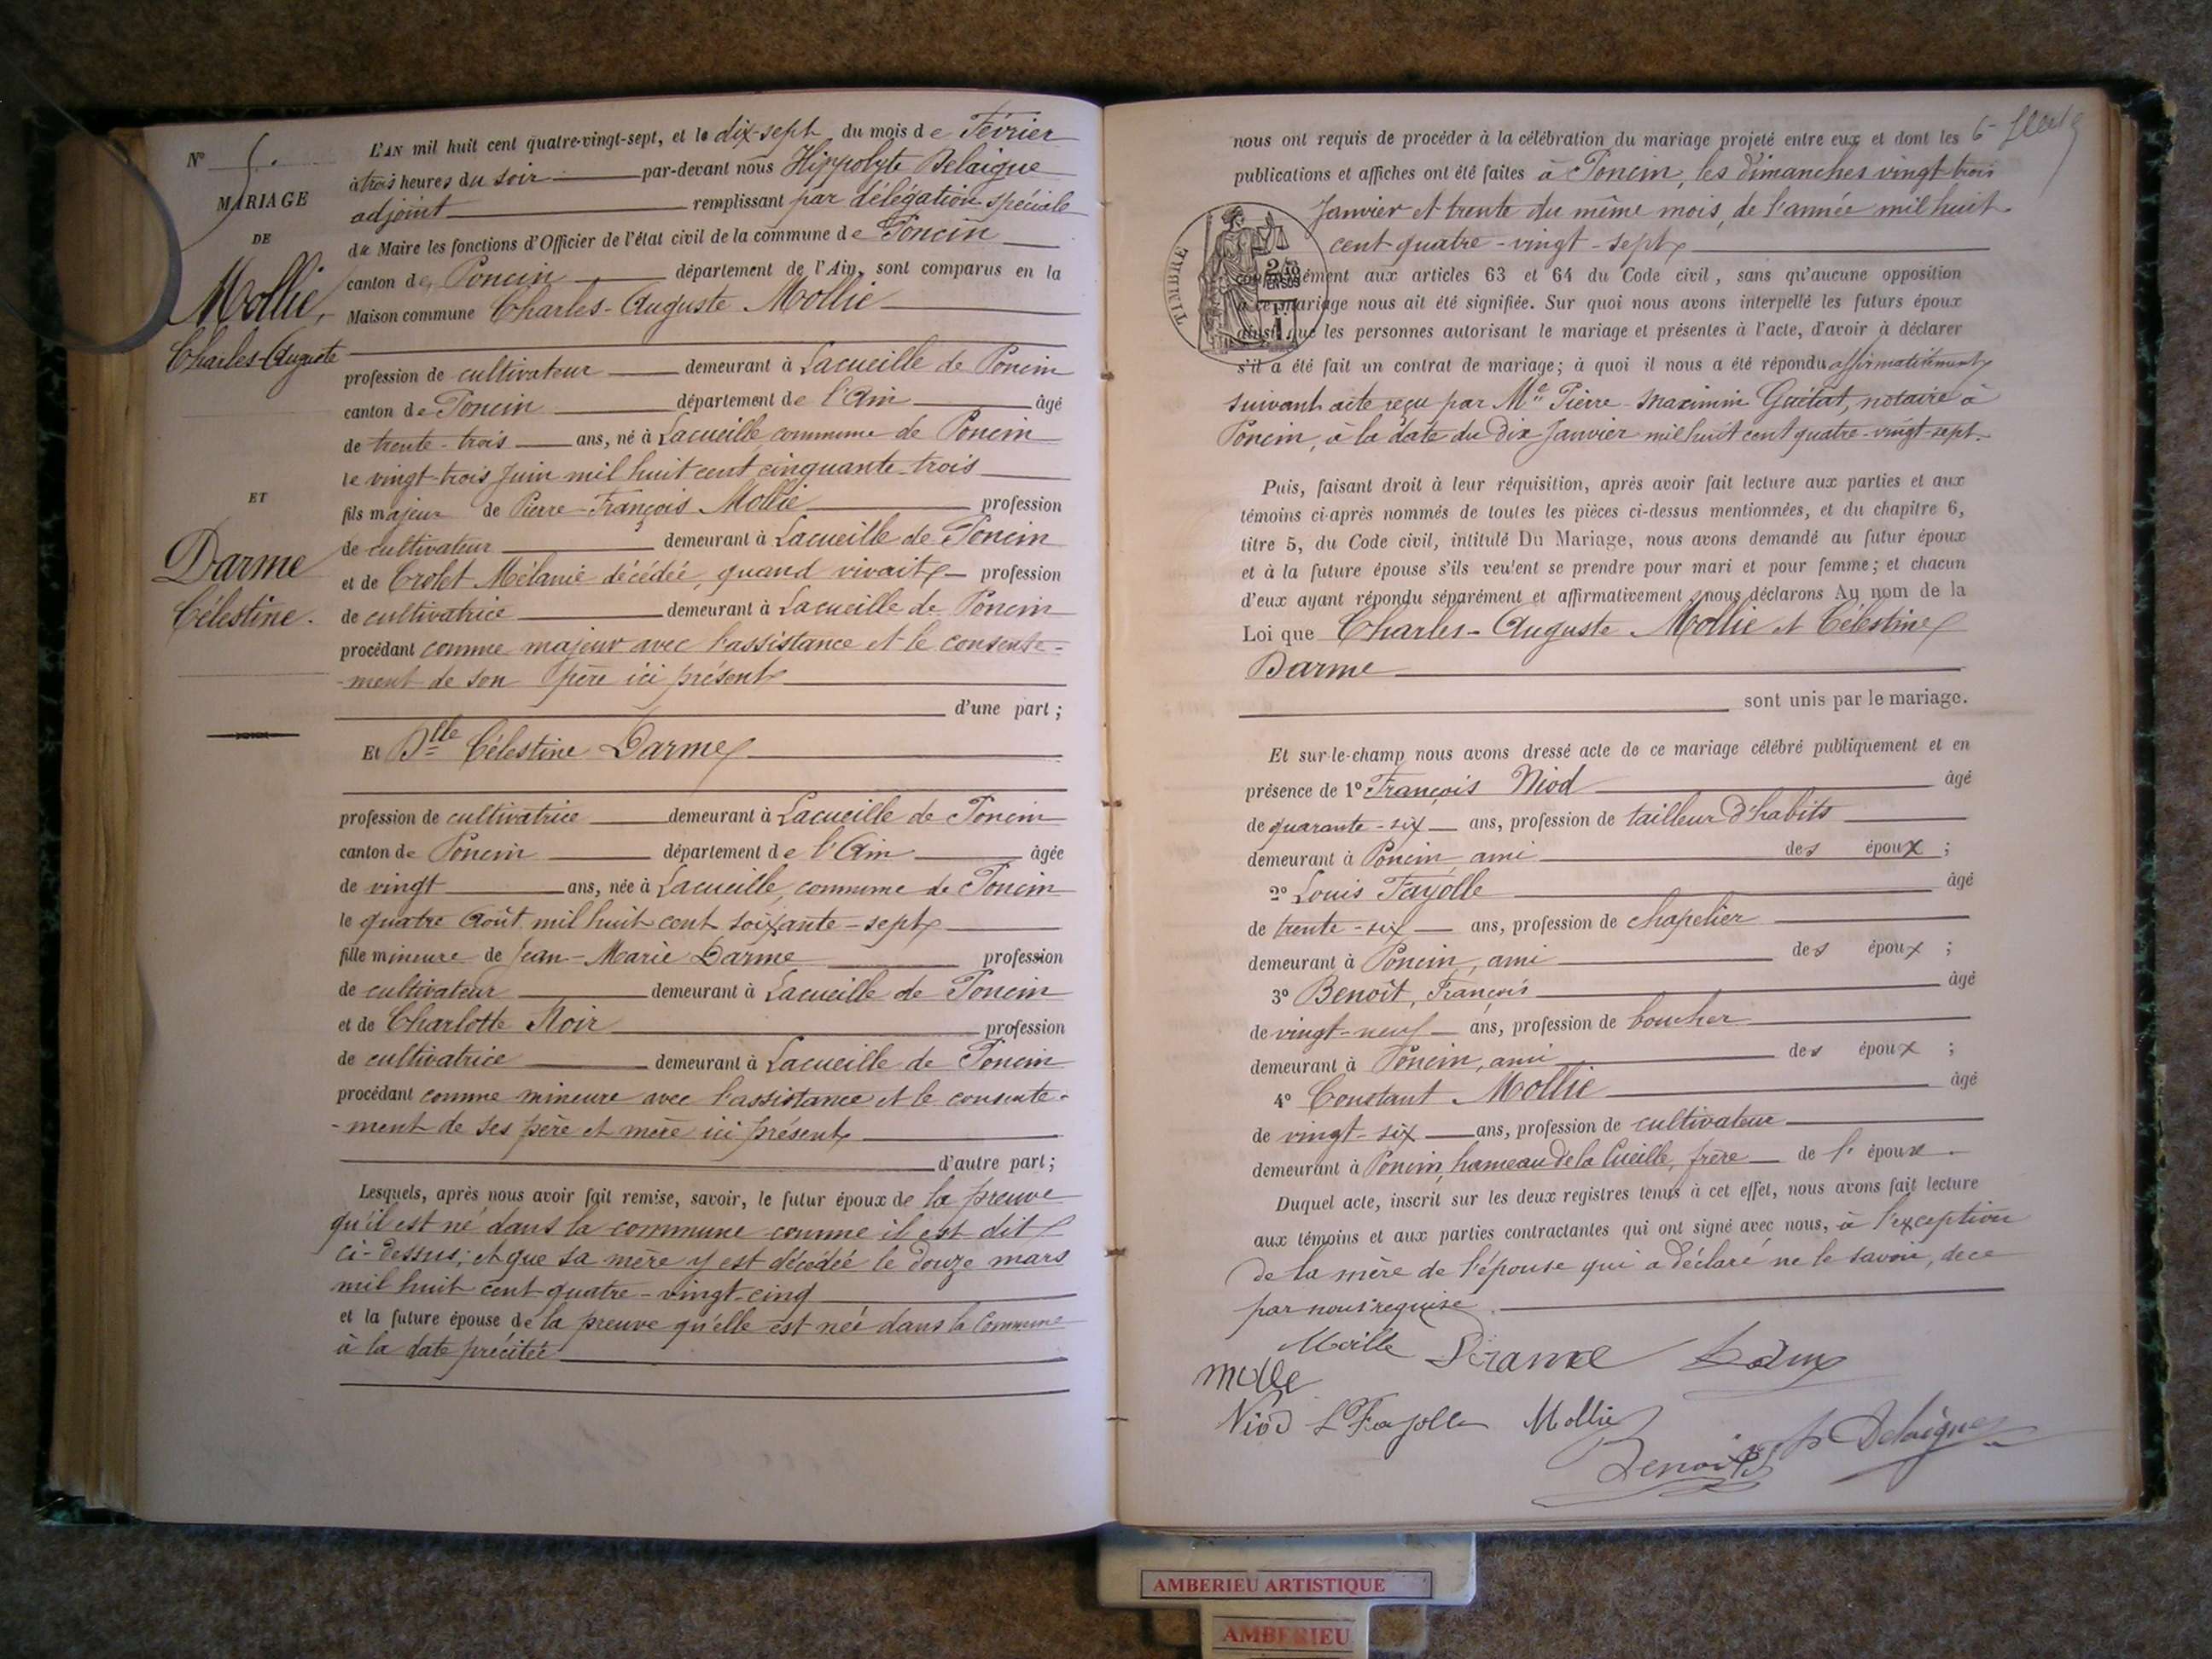 N° 5.
MARIAGE
DE
Mollie,
Charles-Auguste
ET
Darme
Célestine.
L'AN mil huit cent quatre-vingt-sept, et le dix-sept du mois de Février
à trois heures du soir par-devant nous Hippolyte Delaigue
adjoint remplissant par délégation spéciale
du Maire les fonctions d'Officier de l'état civil de la commune de Poncin
canton de Poncin département de l'Ain, sont comparus en la
Maison commune Charles-Auguste Mollie
profession de cultivateur demeurant à Lacueille de Poncin
canton de Poncin département de l'Ain âgé
de trente-trois ans, né à Lacueille commune de Poncin
le vingt-trois Juin mil huit cent cinquante-trois
fils majeur de Pierre-François Mollie profession
de cultivateur demeurant à Lacueille de Poncin
et de Crolet Mélanie décédée, quand vivait profession
de cultivatrice demeurant à Lacueille de Poncin
procédant comme majeur avec l'assistance et le consente-
-ment de son père ici présent
d'une part ;
Et Dlle Célestine Darme
profession de cultivatrice demeurant à Lacueille de Poncin
canton de Poncin département de l'Ain âgée
de vingt ans, née à Lacueille, commune de Poncin
le quatre Août mil huit cent soixante-sept
fille mineure de Jean-Marie Darme profession
de cultivateur demeurant à Lacueille de Poncin
et de Charlotte Noir profession
de cultivatrice demeurant à Lacueille de Poncin
procédant comme mineure avec l'assistance et le consente-
-ment de ses père et mère ici présents
d'autre part ;
Lesquels, après nous avoir fait remise, savoir, le futur époux de la preuve
qu'il est né dans la commune comme il est dit
ci-dessus ; et que sa mère y est décédée le douze mars
mil huit cent quatre-vingt-cinq
et la future épouse de la preuve qu'elle est née dans la Commune
à la date précitée
6
nous ont requis de procéder à la célébration du mariage projeté entre eux et dont les
publications et affiches ont été faites à Poncin, les dimanches vingt-trois
Janvier et trente du même mois, de l'année mil huit
cent quatre-vingt-sept
TIMBRE
conformément aux articles 63 et 64 du Code civil, sans qu'aucune opposition
à ce mariage nous ait été signifiée. Sur quoi nous avons interpellé les futurs époux
ainsi que les personnes autorisant le mariage et présentes à l'acte, d'avoir à déclarer
s'il a été fait un contrat de mariage ; à quoi il nous a été répondu affirmativement
suivant acte reçu par Me Pierre Maximin Guétat, notaire à
Poncin, à la date du dix Janvier mil huit cent quatre-vingt-sept.
Puis, faisant droit à leur réquisition, après avoir fait lecture aux parties et aux
témoins ci-après nommés de toutes les pièces ci-dessus mentionnées, et du chapitre 6,
titre 5, du Code civil, intitulé Du Mariage, nous avons demandé au futur époux
et à la future épouse s'ils veulent se prendre pour mari et pour femme ; et chacun
d'eux ayant répondu séparément et affirmativement, nous déclarons Au nom de la
Loi que Charles-Auguste Mollie et Célestine
Darme
sont unis par le mariage.
Et sur-le-champ nous avons dressé acte de ce mariage célébré publiquement et en
présence de 1° François Niod âgé
de quarante-six ans, profession de tailleur d'habits
demeurant à Poncin ami des époux ;
2° Louis Fayolle âgé
de trente-six ans, profession de chapelier
demeurant à Poncin, ami des époux ;
3° Benoît, François âgé
de vingt-neuf ans, profession de boucher
demeurant à Poncin, ami des époux ;
4° Constant Mollie âgé
de vingt-six ans, profession de cultivateur
demeurant à Poncin, hameau de la Cueille, frère de l'époux.
Duquel acte, inscrit sur les deux registres tenus à cet effet, nous avons fait lecture
aux témoins et aux parties contractantes qui ont signé avec nous, à l'exception
de la mère de l'épouse qui a déclaré ne le savoir, de ce
par nous requise.
Niod L Fayolle Mollie
Benoit Delaigue
AMBERIEU ARTISTIQUE
AMBERIEU